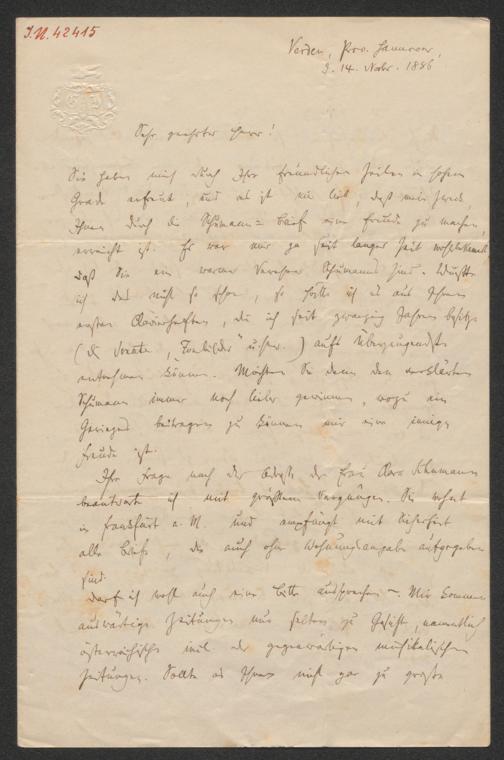 I.N. 42415
Verden, Prov. Hannover,
d. 14. Novbr. 1886
Sehr geehrter Herr!
Sie haben mich durch Ihre freundlichen Zeilen in hohem
Grade erfreut, und es ist mir lieb, daß mein Zweck,
Ihnen durch die Schumann=Briefe eine Freude zu machen,
erreicht ist. Es war mir ja seit langer Zeit wohlbekannt
daß Sie ein warmer Verehrer Schumanns sind. Wüßte
ich das nicht so schon, so hätte ich es aus Ihren
ersten Clavierheften, die ich seit zwanzig Jahren besitze
(die Sonate, "Tonbilder" u.s.w.) aufs Überzeugendste
entnehmen können. Möchten Sie denn den verklärten
Schumann immer noch lieber gewinnen, wozu ein
Geringes beitragen zu können mir eine innige
Freude ist.
Ihre Frage nach der Adresse der Frau Clara Schumann
beantworte ich mit größtem Vergnügen. Sie wohnt
in Frankfurt a. M. und empfängt mit Sicherheit
alle Briefe, die auch ohne Wohnungsangabe aufgegeben
sind.
Darf ich wohl auch eine Bitte aussprechen – Mir kommen
auswärtige Zeitungen nur selten zu Gesicht, namentlich
österreichische mit der gegenwärtigen musikalischen
Zeitungen. Sollte es Ihnen nicht gar zu große